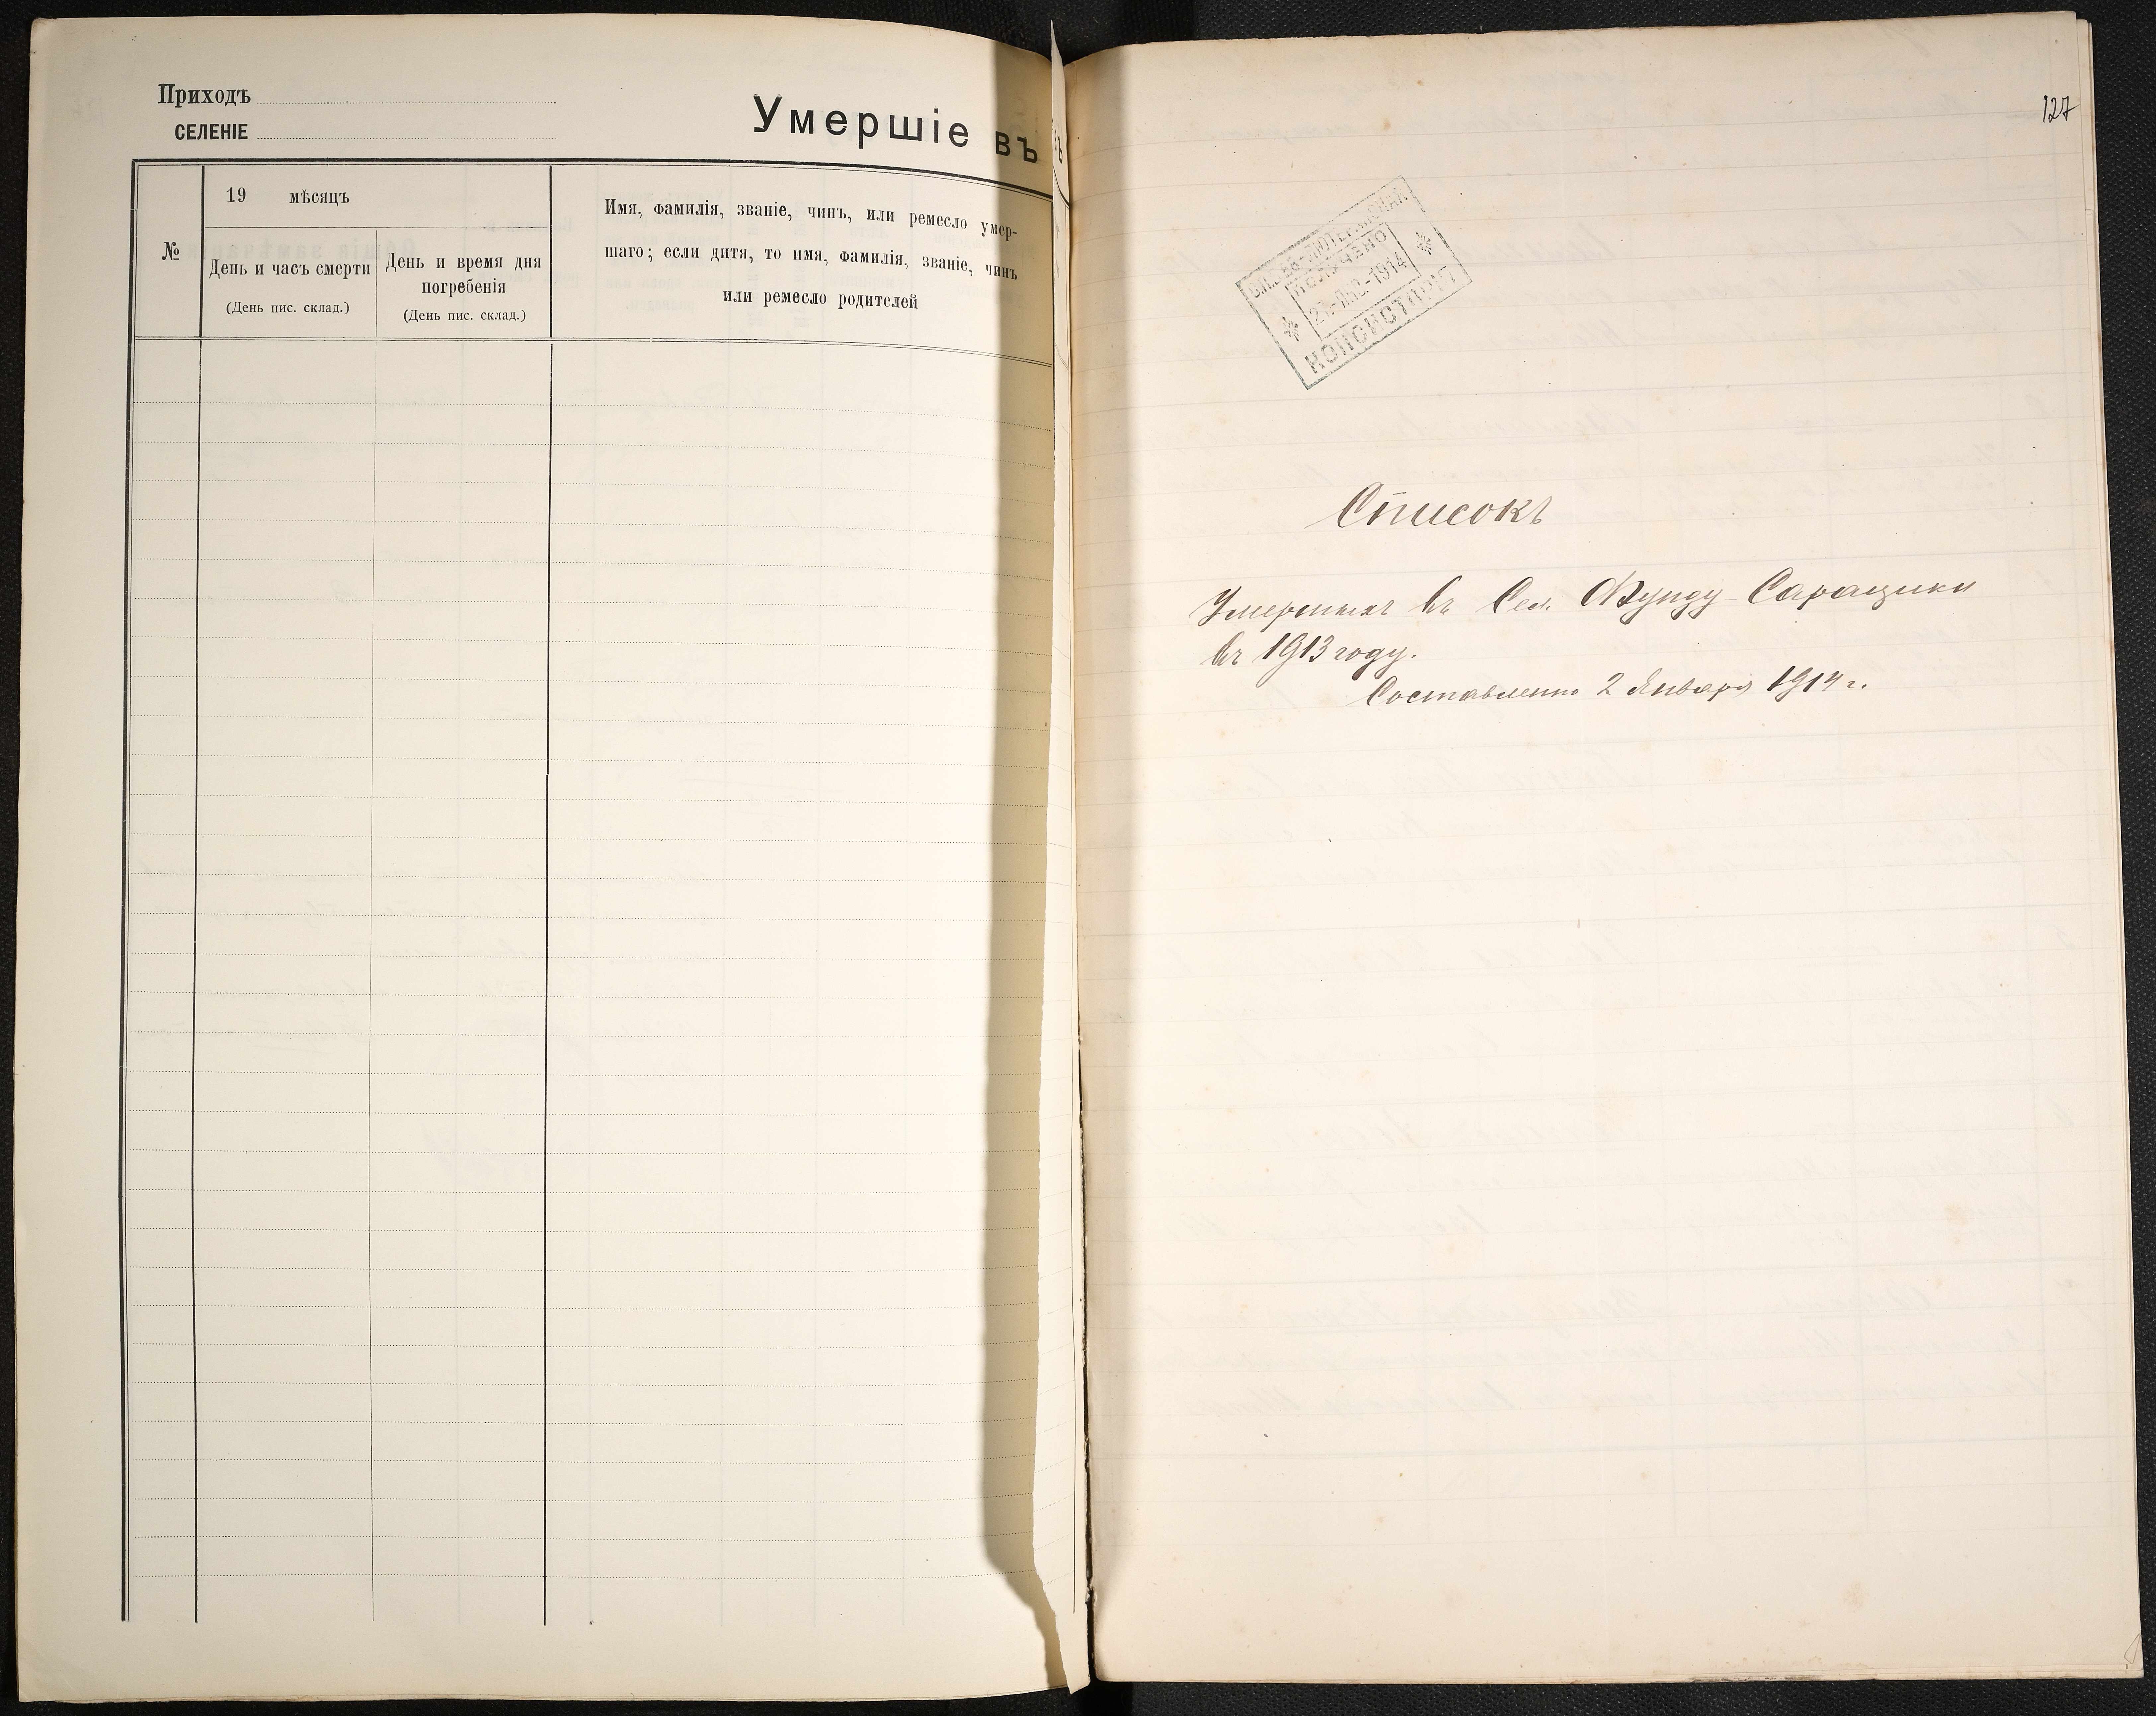 Приходъ
СЕЛЕНІЕ
Умершіе въ
№
19 мѣсяцъ
День и часъ смерти
(День пис. склад.)
День и время дня
погребенія
(День пис. склад.)
Имя, фамилія, званіе, чинъ, или ремесло умер-
шаго; если дитя, то имя, фамилія, званіе, чинъ
или ремесло родителей
127
ЛЮТЕРАНСКАЯ
ПОЛУЧЕНО
-1914
КОНСИСТОРІЯ
Списокъ
Умершихъ въ Сел. Фунду-Сарацики
въ 1913 году.
Составленъ 2 Января 1914 г.